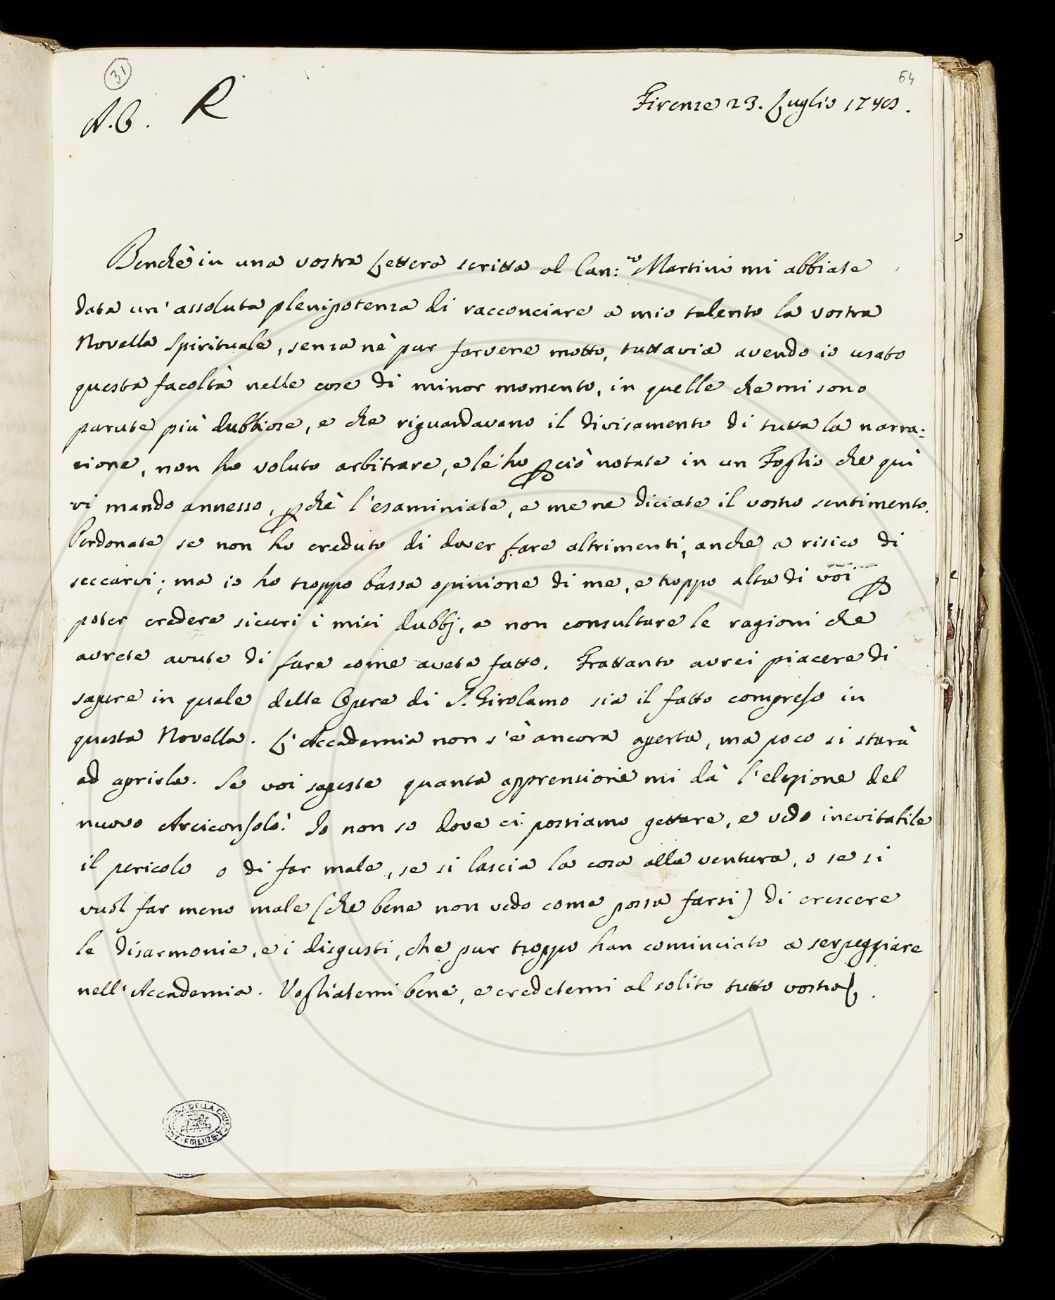 31
64
A.C. R Firenze 23. Luglio 1740.
Benchè in una vostra Lettera scritta al Can:co Martini mi abbiate
data un' assoluta plenipotenza di racconciare a mio talento la vostra
Novella Spirituale, senza nè pur farvene motto, tuttavia avendo io usato
questa facoltà nelle cose di minor momento, in quelle che mi sono
parute più dubbiose, e che riguardavano il divisamento di tutta la narra:
zione, non ho voluto arbitrare, e le ho p ciò notate in un Foglio che quì
vi mando annesso, p chè l'esaminiate, e me ne diciate il vostro sentimento.
Perdonate se non ho creduto di dover fare altrimenti, anche a risico di
seccarvi; ma io ho troppo bassa opinione di me, e troppo alta di voi p
poter credere sicuri i miei dubbj, e non consultare le ragioni che
avrete avute di fare come avete fatto. Frattanto avrei piacere di
sapere in quale delle Opere di S. Girolamo sia il fatto compreso in
questa Novella. L'Accademia non s'è ancora aperta, ma poco si starà
ad aprirla. Se voi sapeste quanta apprensione mi dà l'elezione del
nuovo Arciconsolo! Io non so dove ci possiamo gettare, e vedo inevitabile
il pericolo o di far male, se si lascia la cosa alla ventura, o se si
vuol far meno male (che bene non vedo come possa farsi) di crescere
le disarmonie, e i disgusti, che pur troppo han cominciato a serpeggiare
nell'Accademia. Vogliatemi bene, e credetemi al solito tutto vostro.
DELLA CRUSCA
FIRENZE